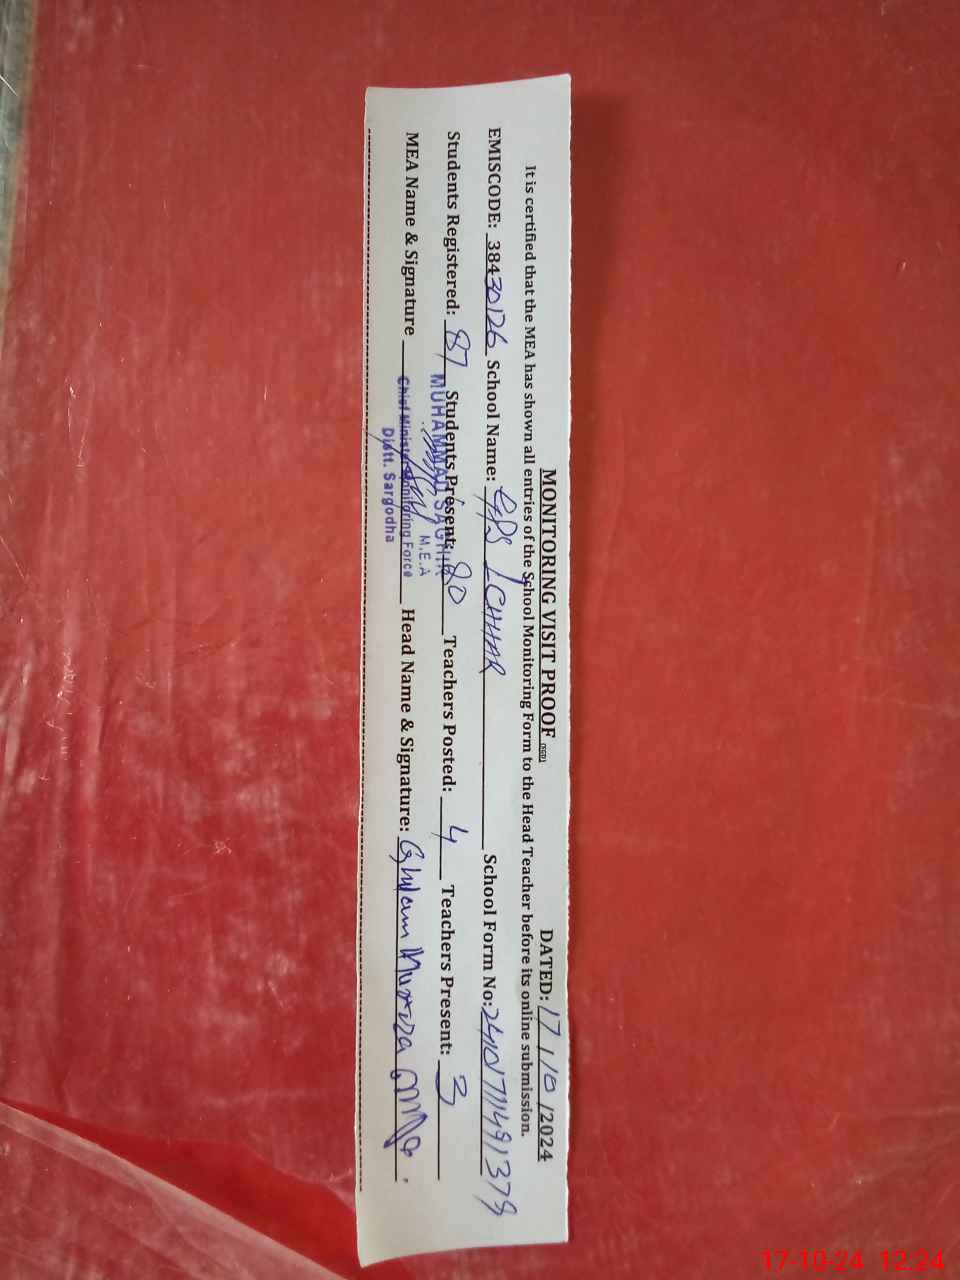 MONITORING VISIT PROOF DATED: 17/10/2024
It is certified that the MEA has shown all entries of the School Monitoring Form to the Head Teacher before its online submission.
EMISCODE: 38430126 School Name: GPS ICHHAR School Form No:
Students Registered: 87 Students Present: 80 Teachers Posted: 4 Teachers Present: 3
MUHAMMAD SAGHIR
M.E.A
MEA Name & Signature Head Name & Signature: Ghulam Murtaza
Chief Minister Monitoring Force
Distt. Sargodha
17-10-24 12:24